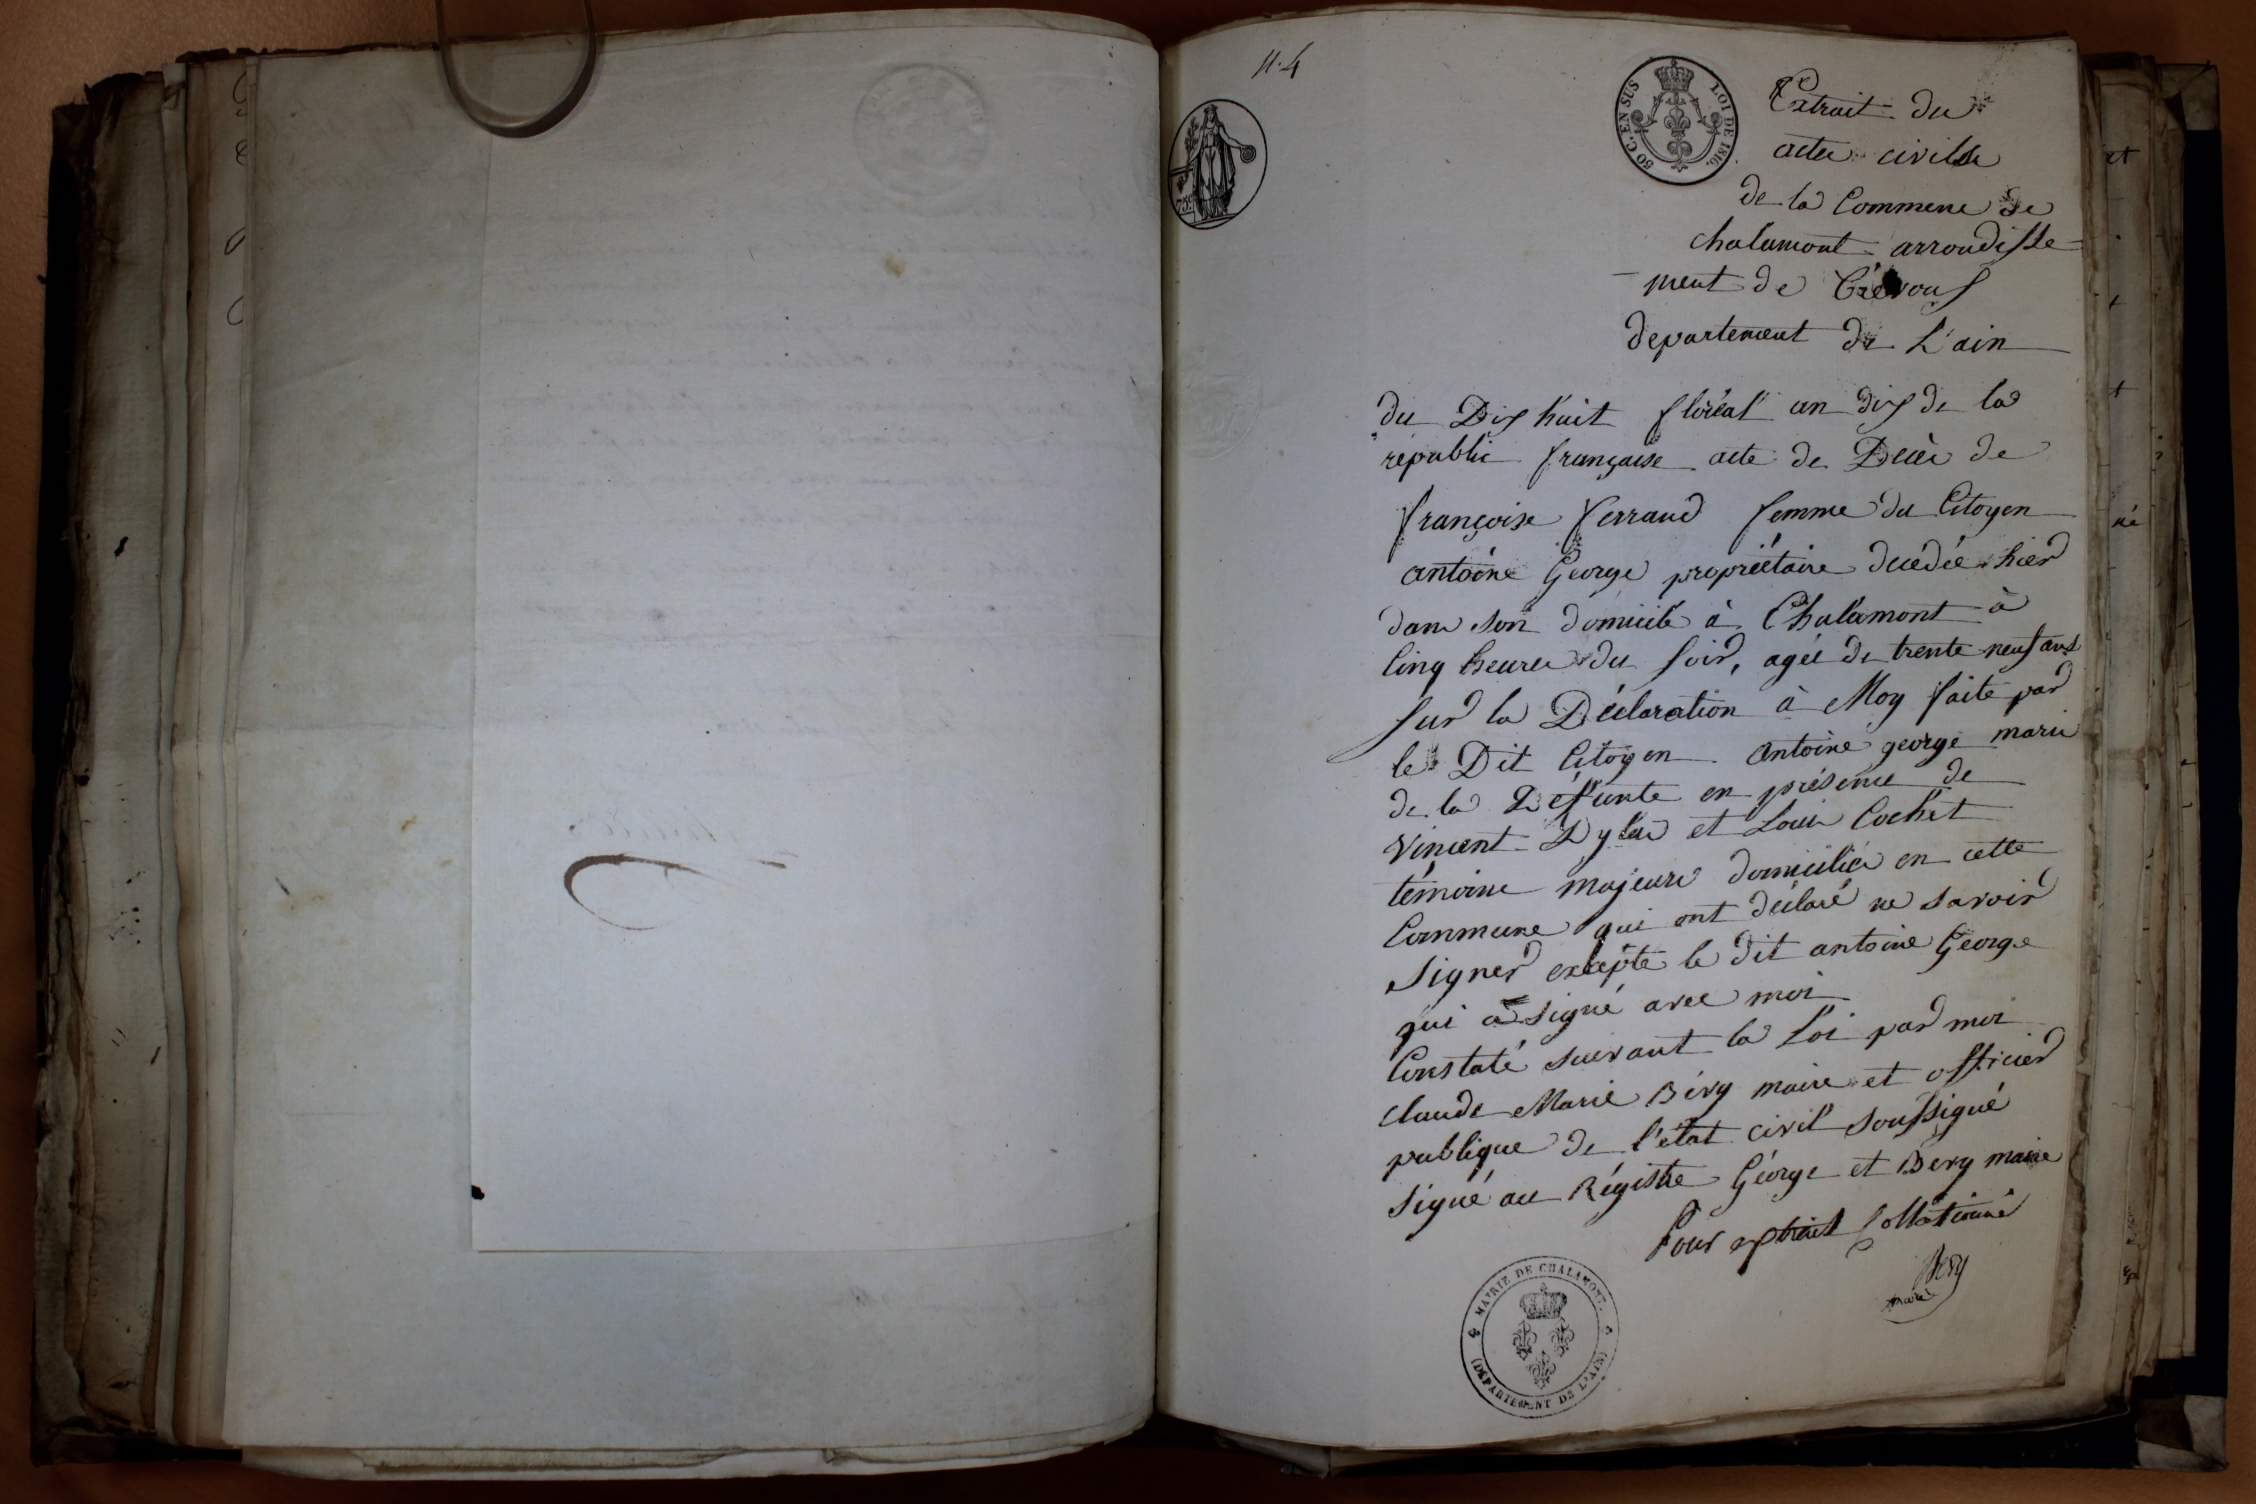 n.4
50 C. EN SUS LOI DE 1816.
75c
Extrait du
acte civilse
de la Commune de
chalamont arrondisse
ment de Trévous
departement de L'ain
du Dix huit floréal an dix de la
républic française acte de Decès de
françoise ferrand femme du Citoyen
antoine George propriétaire decedée hier
dans son domicile à Chalamont à
Cinq heures du soir, agée de trente neuf ans
sur la Déclaration à Moy faite par
le Dit Citoyen antoine george marie
de la Défunte en présence de
Vincent et Louis Cochet
témoins majeurs domiciliés en cette
Commune qui ont déclaré ne savoir
signer excepté le dit antoine George
qui a signé avec moi
Constaté suivant la Loi par moi
claude Marie Béry maire et officier
publique de l'état civil soussigné
signé au Régistre George et Bery maire
Pour extrait Collationné
Bery
maire
MAIRIE DE CHALAMONT.
(DÉPARTEMENT DE L'AIN)